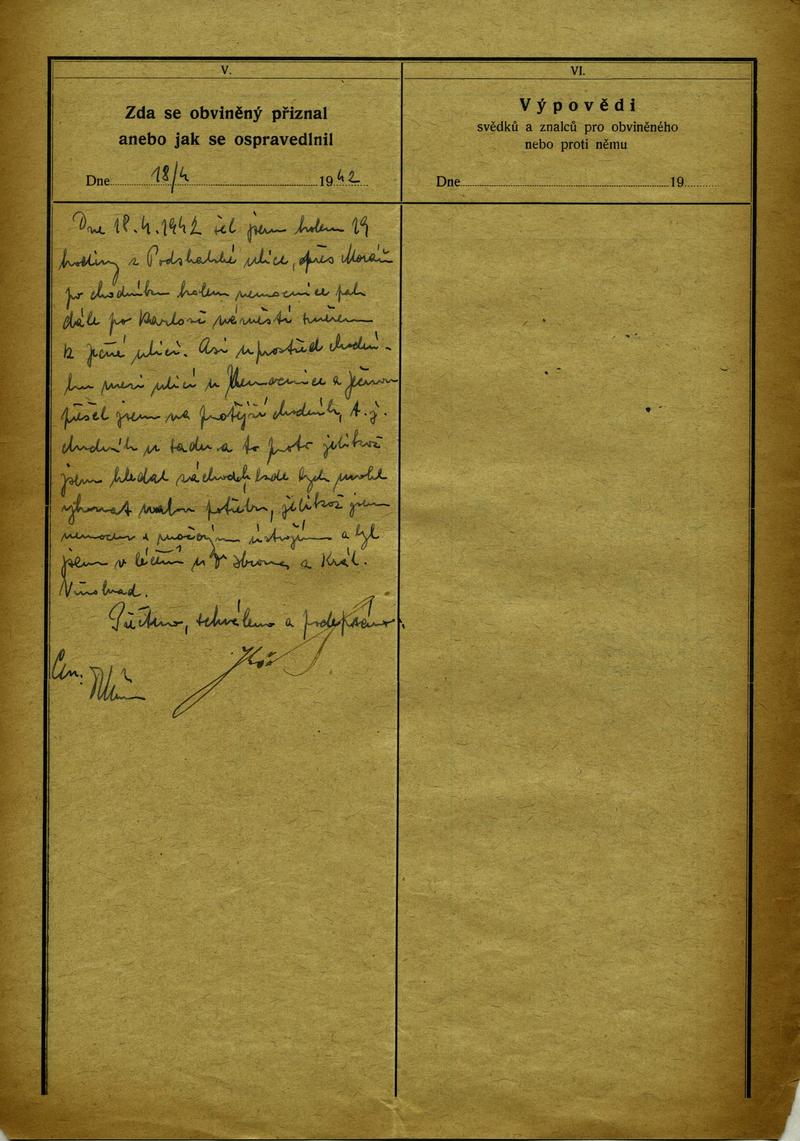 V.
Zda se obviněný přiznal
anebo jak se ospravedlnil
Dne 18/4 1942
Dne 18.4.1942 šel jsem kolem 19
hodiny z Podskalské ulice, přes Moráň
po chodníku kolem nemocnice pak
dále po Karlově náměstí směrem
k ječné ulici. Asi uprostřed chodní-
ku mezi ulicí u Nemocnice a Ječnou
přešel jsem na protější chodník, t.j.
chodník u sadu a to proto jelikož
jsem hledal záchodek kde bych mohl
vykonat malou potřebu, jelikož jsem
nemocen s močovým ústrojím a byl
jsem v léčení u Dr a Král.
Vinohrad.
Přečteno, schváleno a podepsáno.
VI.
Výpovědi
svědků a znalců pro obviněného
nebo proti němu
Dne 19